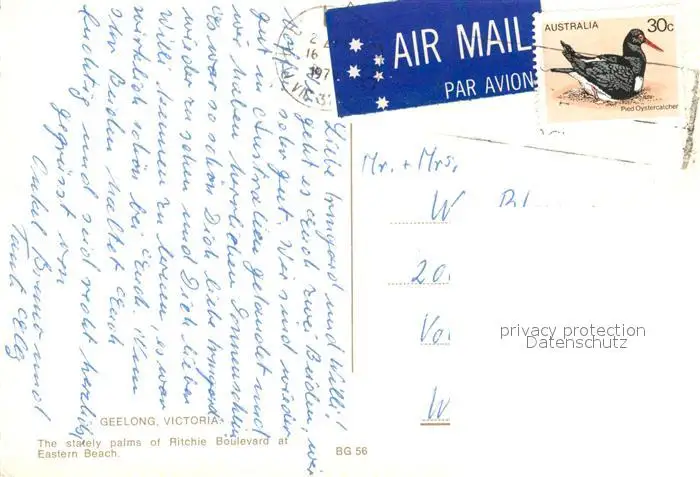 2
16
197
AIR MAIL
PAR AVION
AUSTRALIA 30c
Pied Oystercatcher
Liebe Irmgard und Willi!
geht es Euch zwei Beiden, wir
hoffen sehr gut. Wir sind wieder
gut in Australien gelandet und
wir haben herrlichen Sonnenschein
Es war schön Dich liebe Irmgard
wieder zu sehen und Dich lieber
Willi kennen zu lernen, es war
wirklich schön bei Euch. Nun
Ihr Beiden haltet Euch
tüchtig und seid recht herzlich
gegrüsst von
Onkel Bruno und
Tante Elly
Mr. + Mrs.
W
20
Vo
W
privacy protection
Datenschutz
GEELONG, VICTORIA
The stately palms of Ritchie Boulevard at
Eastern Beach.
BG 56